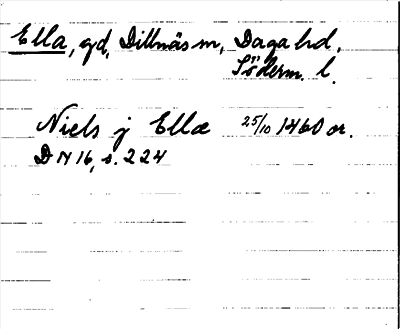 Ella, gd, Dillnäs sn, Daga hd,
Söderm. l.
Niels j Ella 25/10 1460 or.
DN 16, s. 224